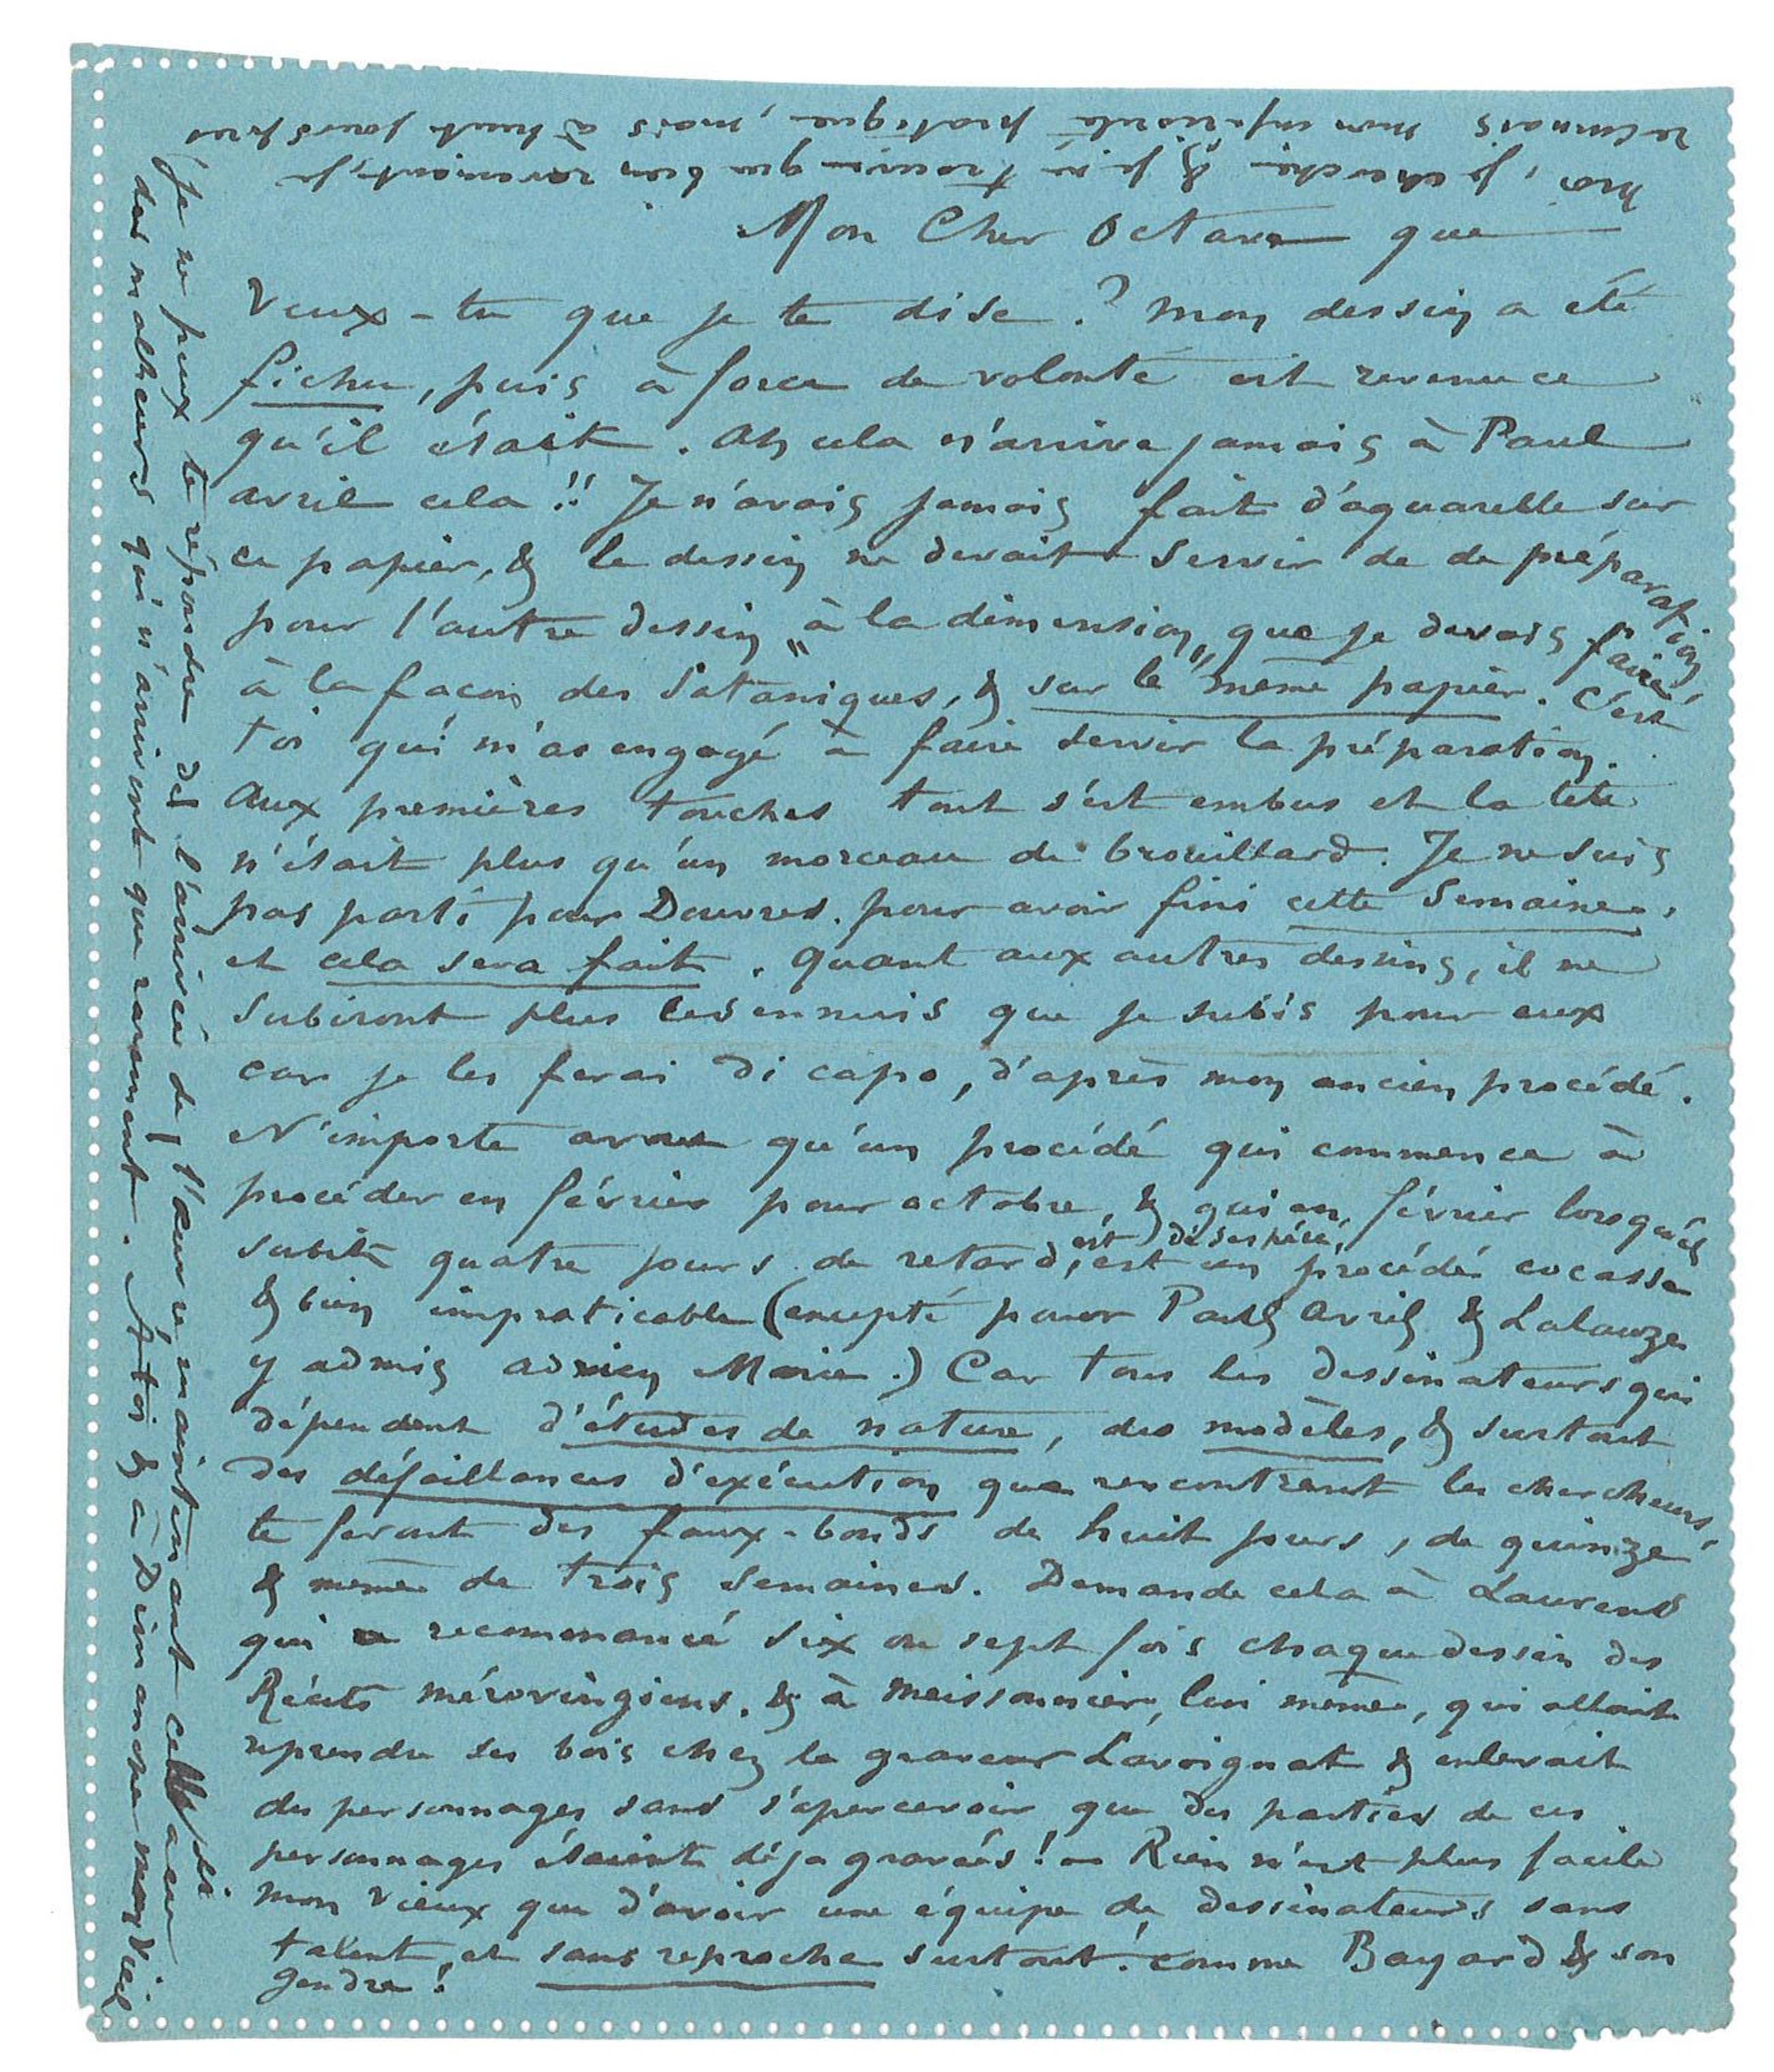 Mon Cher Octave que
veux-tu que je te dise ? Mon dessin a été
fichu, puis à force de volonté est revenu ce
qu'il était. Ah cela n'arrive jamais à Paul
avril cela !! Je n'avais jamais fait d'aquarelle sur
ce papier, & le dessin ne devait servir de de préparation,
pour l'autre dessin „à la dimension„ que je devais faire
à la façon des Sataniques, & sur le même papier. C'est
toi qui m'as engagé à faire servir la préparation.
Aux premières touches tout s'est embus et la tête
n'était plus qu'un morceau de brouillard. Je ne suis
pas parti pour Douvres. pour avoir fini cette Semaine.
et cela sera fait. Quant aux autres dessins, il ne
subiront plus les ennuis que je subis pour eux
car je les ferai di capo, d'après mon ancien procédé.
N'importe avoue qu'un procédé qui commence à
procéder en février pour octobre, & qui en février lorsqu'il
subit quatre jours de retard, est désespéré, est un procédé cocasse
& bien impraticable (excepté pour Paul Avril & Lalauze
y admis adrien Marie.) Car tous les dessinateurs qui
dépendent d'études de nature, des modèles, & surtout
des défaillances d'exécution que rencontrent les chercheurs,
te feront des faux-bonds de huit jours, de quinze
& même de trois semaines. Demande cela à Laurens
qui a recommancé six ou sept fois chaque dessin des
Récits mérovingiens. & à Meissonnier, lui même, qui allait
reprendre ses bois chez le graveur Lavoignat & enlevait
des personnages sans s'apercevoir que des parties de ces
personnages étaient déja gravées ! — Rien n'est plus facile
mon vieux que d'avoir une équipe de dessinateurs sans
talent, et sans reproche surtout. comme Bayard & son
gendre !
moi, je cherche & je ne trouve que bien rarement, je
reconnais mon infériorité pratique, mais à huit jours près
je ne peux te répondre de l'arrivée de l'œuvre maintenant
des malheurs qui n'arrivent que rarement. À toi & à Dimanche mon vieil